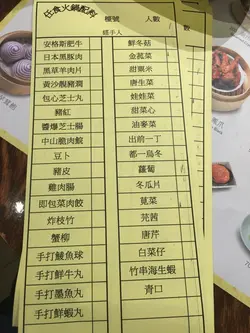 任食火鍋配料
檯號
人數 /
經手人
數
安格斯肥牛
鮮冬菇
日本黑豚肉
金菰菜
黑草羊肉片
甜粟米
黃沙靚豬潤
唐生菜
包心芝士丸
娃娃菜
豬紅
甜菜心
醬爆芝士腸
油麥菜
中山脆肉鯇
出前一丁
豆卜
都一烏冬
豬皮
蘿蔔
雞肉腸
冬瓜片
即包菜肉餃
莧菜
炸枝竹
芫茜
蟹柳
唐芹
手打鯪魚球
白菜仔
手打鮮牛丸
竹串海生蝦
手打墨魚丸
青口
手打鮮蝦丸